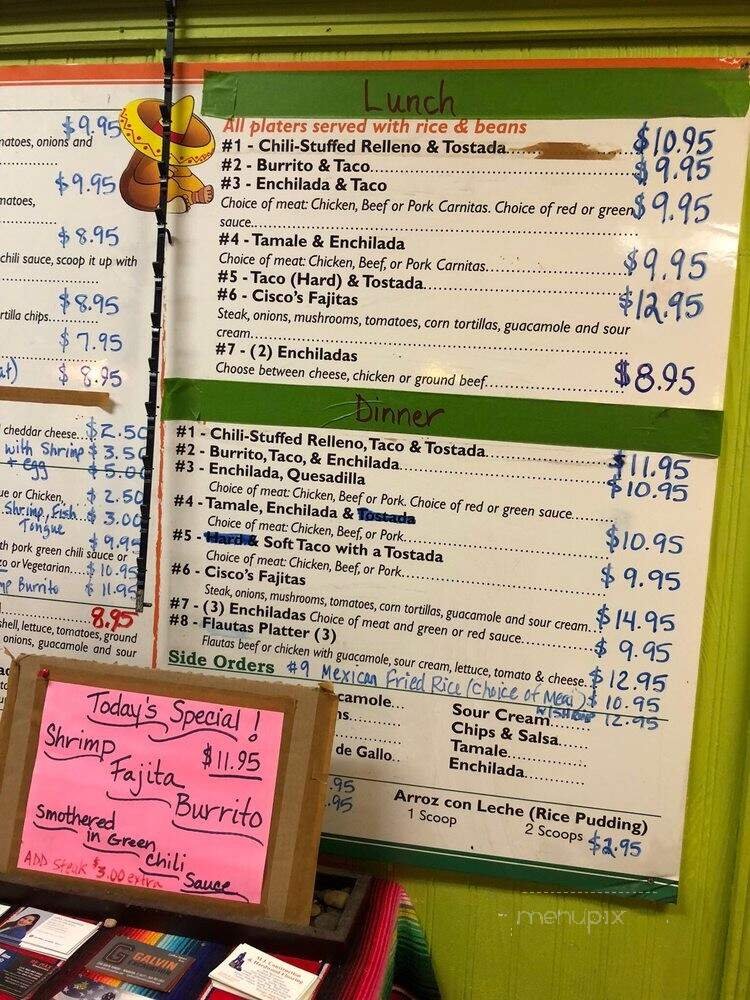 $9.95
matoes, onions and
$9.95
matoes,
$8.95
chili sauce, scoop it up with
$8.95
rtilla chips.......
$7.95
$8.95
cheddar cheese..$2.50
with Shrimp $3.50
+ egg $5.00
ue or Chicken, $2.50
Shrimp, Fish $3.00
Tongue
$9.95
th pork green chili sauce or
or Vegetarian....$10.95
mp Burrito $11.95
8.95
shell, lettuce, tomatoes, ground
onions, guacamole and sour
Lunch
All platers served with rice & beans
#1 - Chili-Stuffed Relleno & Tostada $10.95
#2 - Burrito & Taco $9.95
#3 - Enchilada & Taco
Choice of meat: Chicken, Beef or Pork Carnitas. Choice of red or green $9.95
sauce
#4 - Tamale & Enchilada
Choice of meat: Chicken, Beef, or Pork Carnitas $9.95
#5 - Taco (Hard) & Tostada
#6 - Cisco's Fajitas $12.95
Steak, onions, mushrooms, tomatoes, corn tortillas, guacamole and sour
cream
#7 - (2) Enchiladas
Choose between cheese, chicken or ground beef. $8.95
Dinner
#1 - Chili-Stuffed Relleno, Taco & Tostada $11.95
#2 - Burrito, Taco, & Enchilada $10.95
#3 - Enchilada, Quesadilla
Choice of meat: Chicken, Beef or Pork. Choice of red or green sauce
#4 - Tamale, Enchilada & Tostada
Choice of meat: Chicken, Beef, or Pork $10.95
#5 - Hard & Soft Taco with a Tostada
Choice of meat: Chicken, Beef, or Pork $9.95
#6 - Cisco's Fajitas
Steak, onions, mushrooms, tomatoes, corn tortillas, guacamole and sour cream... $14.95
#7 - (3) Enchiladas Choice of meat and green or red sauce $9.95
#8 - Flautas Platter (3)
Flautas beef or chicken with guacamole, sour cream, lettuce, tomato & cheese. $12.95
Side Orders #9 Mexican Fried Rice (Choice of Meat) $10.95
w/shrimp 12.95
camole...
de Gallo..
.95
.95
Sour Cream
Chips & Salsa......
Tamale
Enchilada
Arroz con Leche (Rice Pudding)
1 Scoop 2 Scoops $2.95
Today's Special!
Shrimp $11.95
Fajita
Burrito
Smothered
in Green
Chili
Sauce
ADD Steak $3.00 extra
G GALVIN
menupix